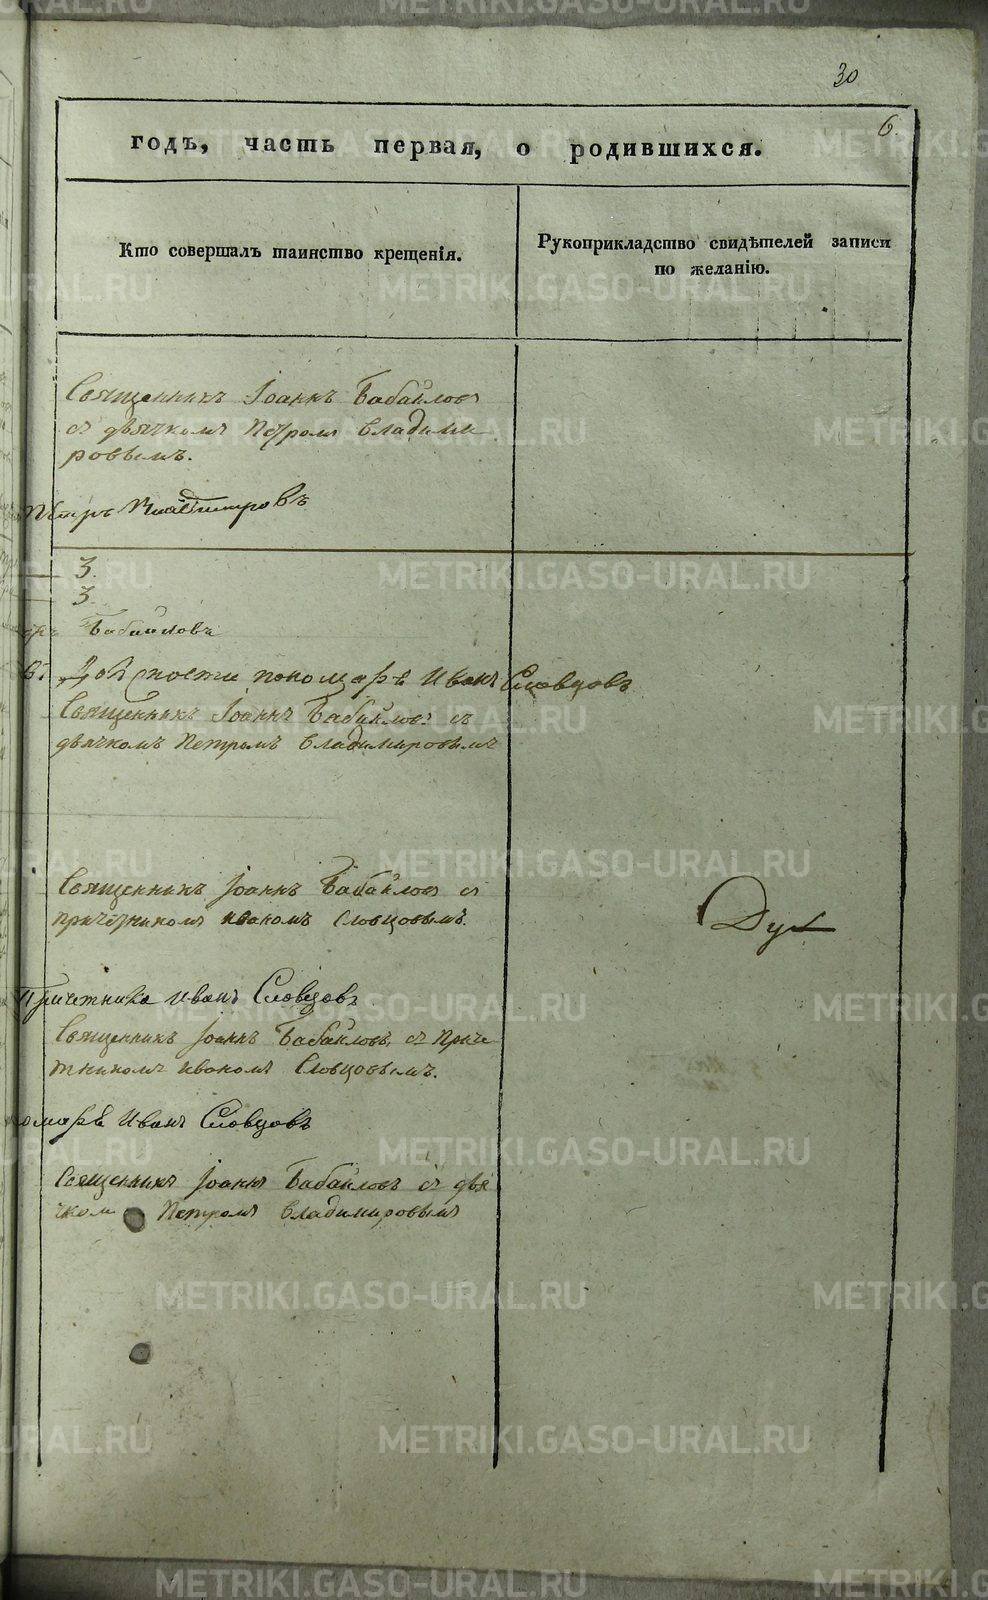 30
6.
годъ, часть первая, о родившихся.
Кто совершалъ таинство крещенія.
Рукоприкладство свидѣтелей записи
по желанію.
Священникъ Іоаннъ Бабайловъ
съ дьячкомъ Петромъ Владими
ровымъ.
Петръ Владимировъ
3.
3.
Бабайловъ
въ Должности пономаря Иванъ Словцовъ
Священникъ Іоаннъ Бабайловъ съ
дьячкомъ Петромъ Владимировымъ
Священникъ Іоаннъ Бабайловъ съ
причетникомъ иваномъ Словцовымъ.
Дух
Причетникъ иванъ Словцовъ
Священникъ Іоаннъ Бабайловъ съ Приче
тникомъ иваномъ Словцовымъ.
Иванъ Словцовъ
Священникъ Іоаннъ Бабайловъ съ дья
чком Петромъ Владимировымъ
METRIKI.GASO-URAL.RU